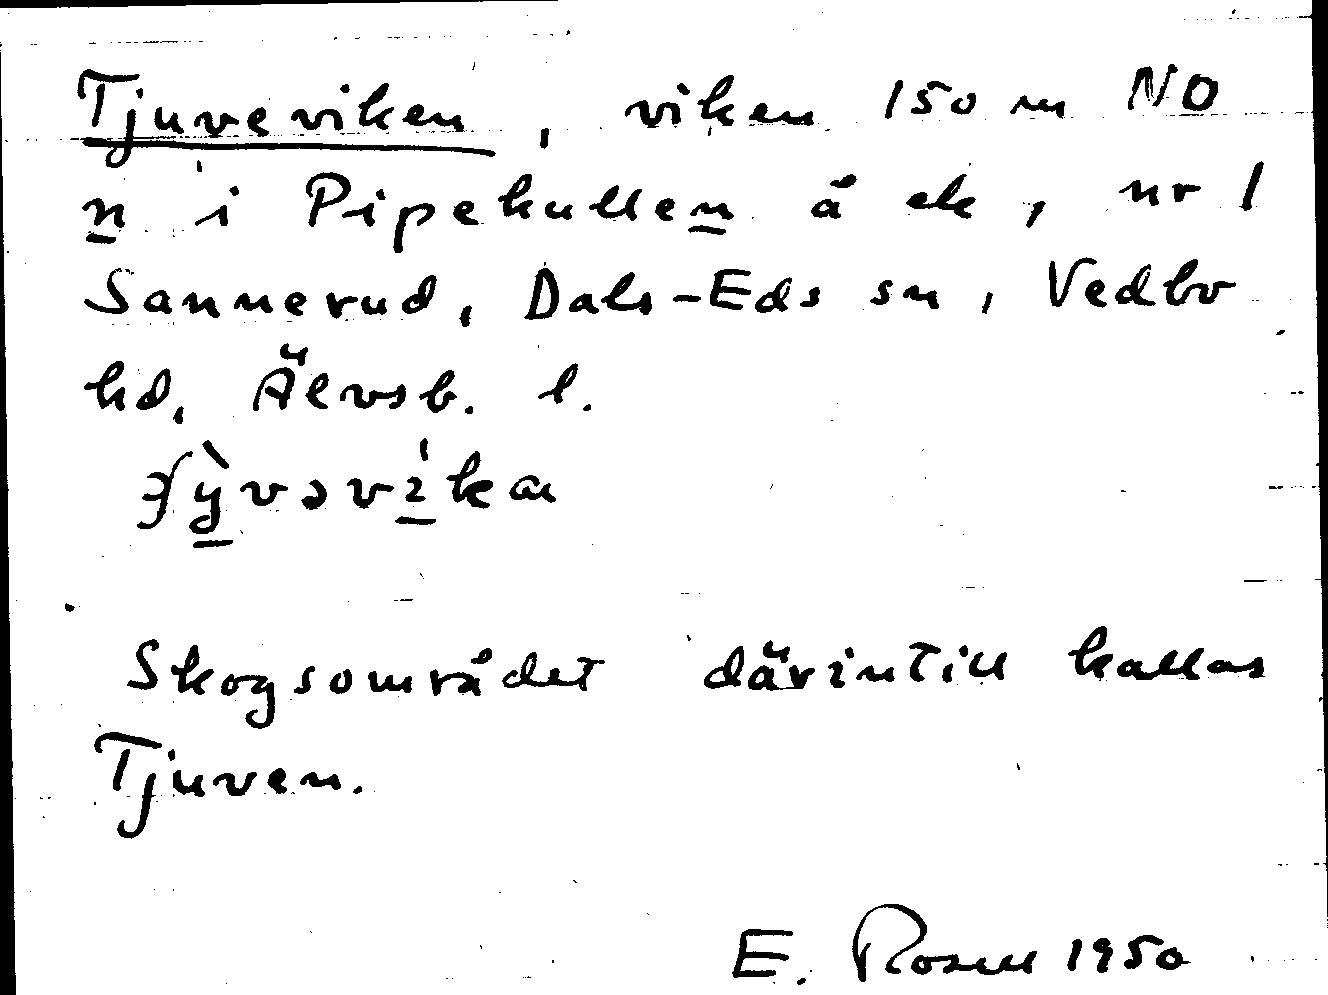 Tjuveviken, viken 150 m NO
n i Pipekullen å ek, nr 1
Sannerud, Dals-Eds sn, Vedbo
hd, Älvsb. l.
Skogsområdet därintill kallas
Tjuven.
E. Rosell 1950